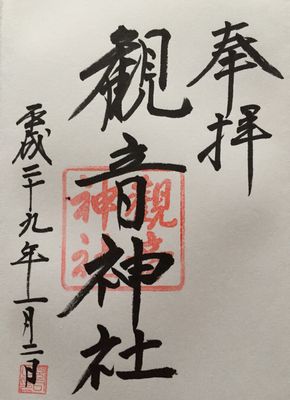 奉拝
観音神社
平成二十九年一月二日
観音神社